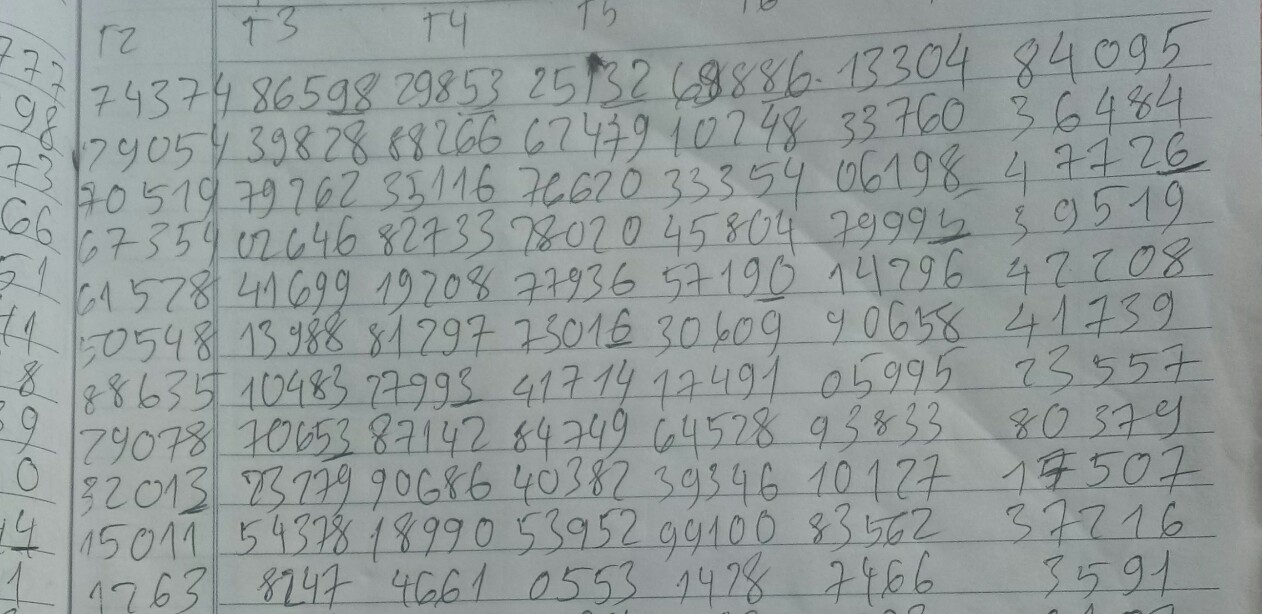 T2 T3 T4 T5
777 74374 86598 29853 25132 68886 13304 84095
98 29054 39828 88266 62479 10248 33760 36484
73 70519 79262 35116 76620 33354 06198 47726
66 67354 02646 82733 28020 45804 79995 39519
51 61528 41699 19208 77936 57190 14296 42208
71 50548 13988 81297 73016 30609 90658 41739
8 88635 10483 27993 41714 17491 05995 23557
39 29078 70653 87142 84749 64528 93833 80379
0 32013 23279 90686 40382 39346 10127 507
4 15011 54378 18990 53952 99100 83562 37216
1 1263 8247 4661 0553 1428 7466 3591